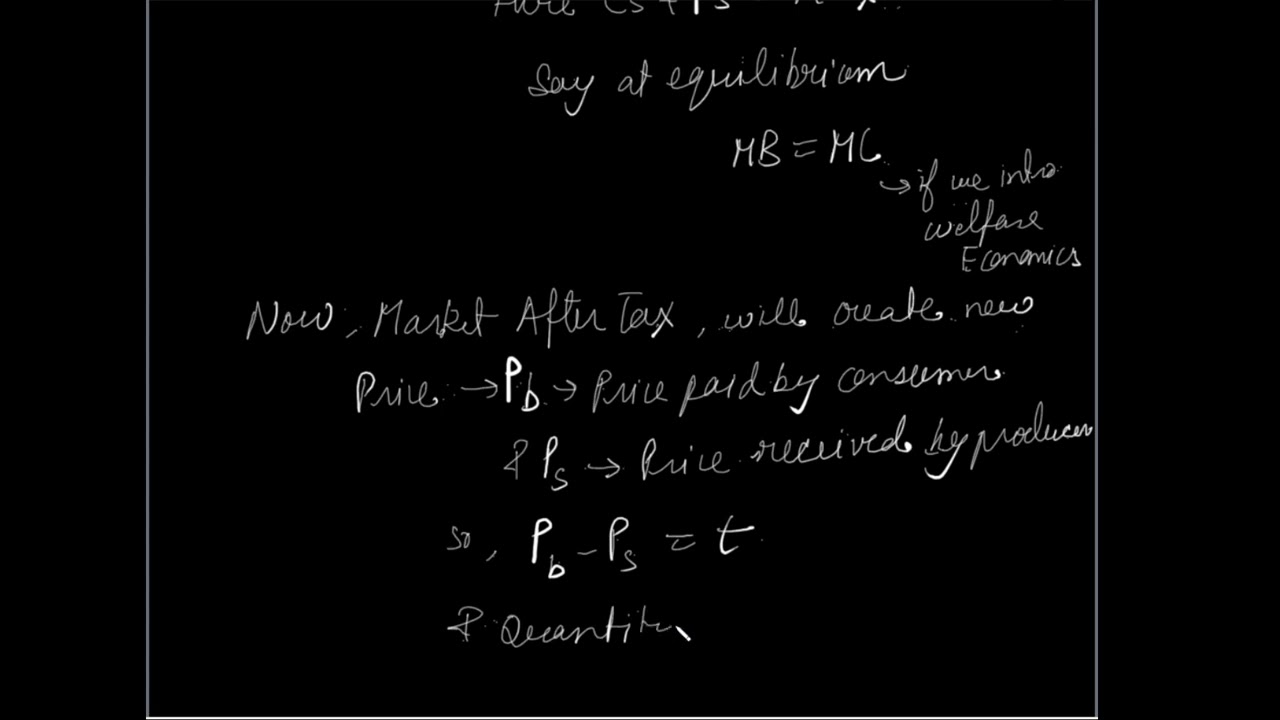 Say at equilibrium
MB = MC
→ if we intro
welfare
Economics
Now, Market After Tax, will create new
Price → Pb → Price paid by consumer
& Ps → Price received by producer
so, Pb - Ps = t
& Quantity